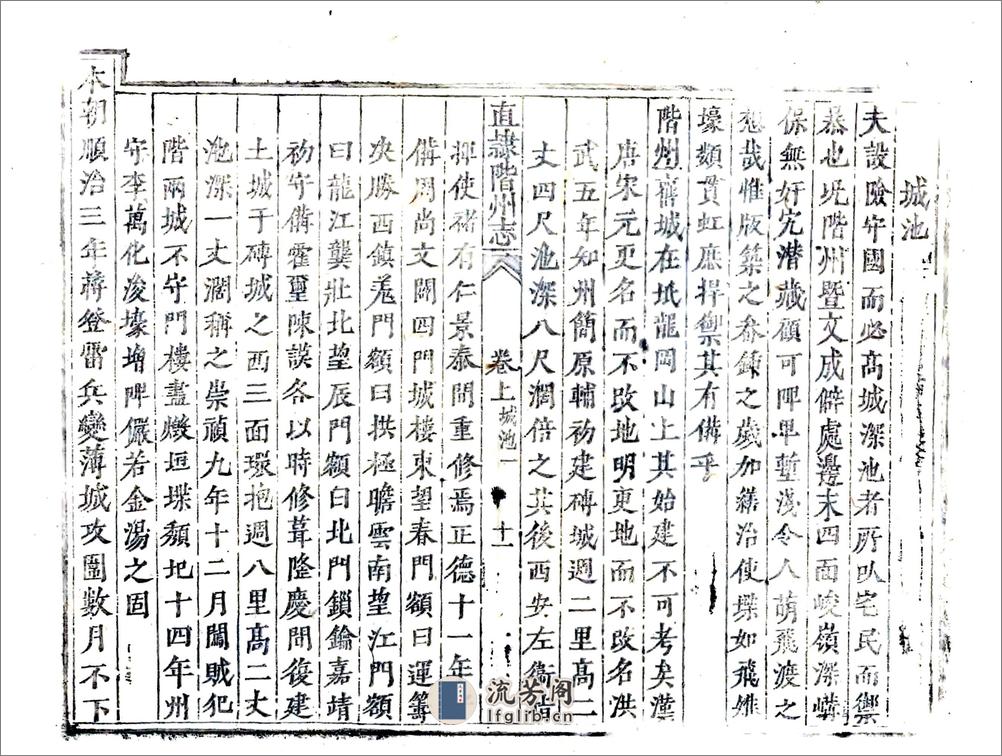 城池
夫設險守國而必高城深池者所以宅民而禦
暴也況階州暨文成僻處邊末四面峻嶺深
保無奸宄潛藏顧可陴卑塹淺令人萌飛渡之
想哉惟版築之畚鍤之歲加繕治使堞如飛雉
壕類貫虹庶捍禦其有備乎
階州舊城在坻龍岡山上其始建不可考矣漢
唐宋元更名而不改地明更地而不改名洪
武五年知州簡原輔初建磚城週二里高二
丈四尺池深八尺濶倍之其後西安左衛指
直隸階州志 卷上 城池一 十一
揮使褚有仁景泰間重修焉正德十一年
備周尚文闢四門城樓東望春門額曰運籌
決勝西鎮羗門額曰拱極瞻雲南望江門額
曰龍江龔壯北望辰門額曰北門鎖鑰嘉靖
初守備霍璽陳謨各以時修葺隆慶間復建
土城于磚城之西三面環抱週八里高二丈
池深一丈濶稱之崇禎九年十二月闖賊犯
階兩城不守門樓盡燬垣堞頽圮十四年州
守李萬化浚壕增陴儼若金湯之固
本朝順治三年蔣登雷兵變薄城攻圍數月不下
流芳閣
lfglib.cn